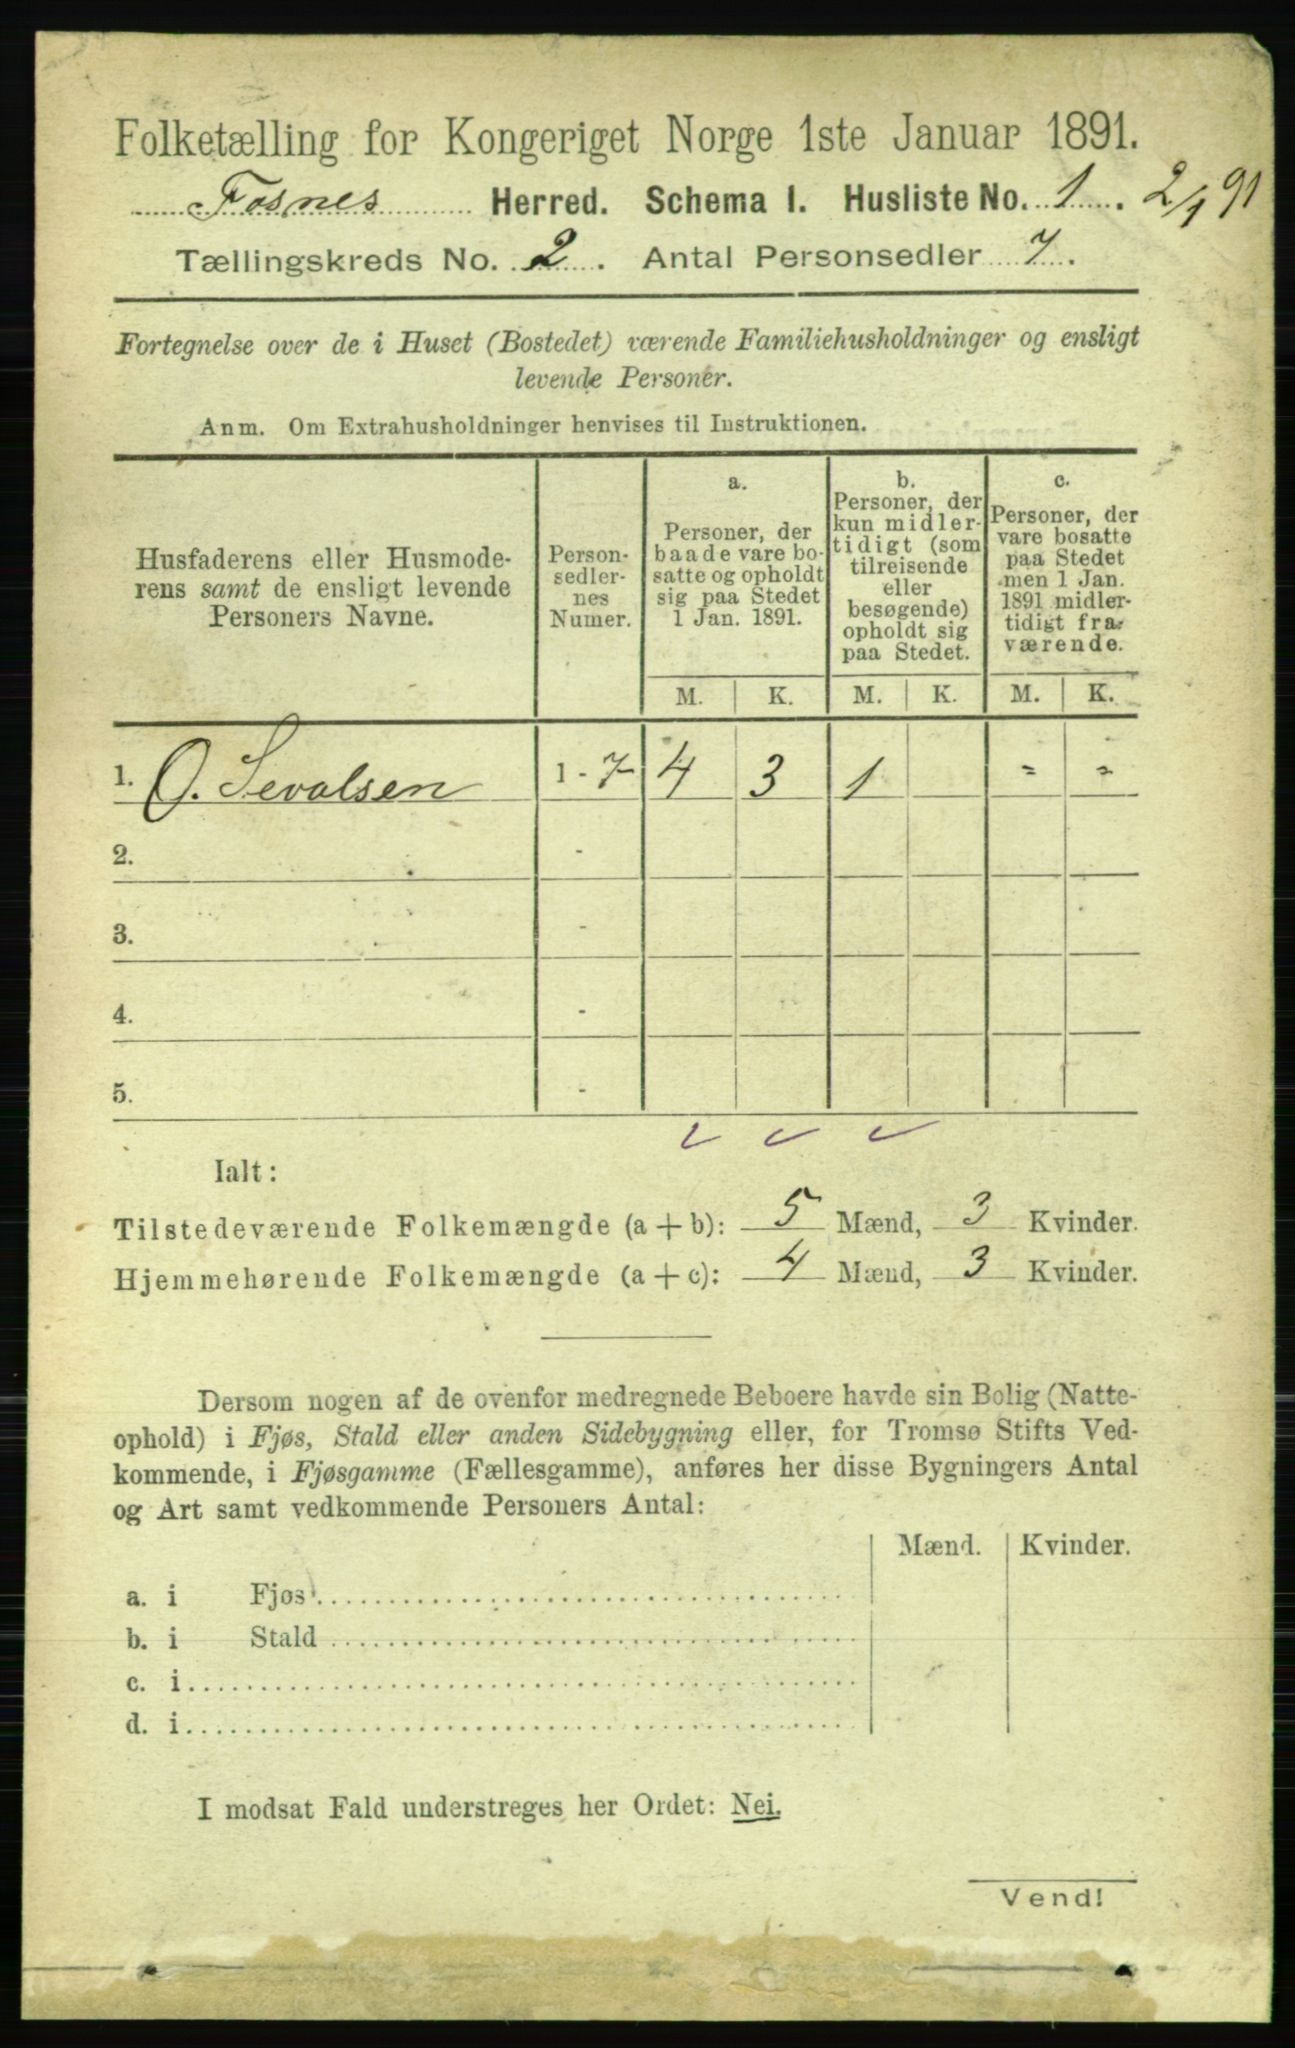 Folketælling for Kongeriget Norge 1ste Januar 1891.
Fosnes Herred. Schema I. Husliste No. 1. 2/1 91
Tællingskreds No. 2. Antal Personsedler 7.
Fortegnelse over de i Huset (Bostedet) værende Familiehusholdninger og ensligt
levende Personer.
Anm. Om Extrahusholdninger henvises til Instruktionen.
Husfaderens eller Husmode-
rens samt de ensligt levende
Personers Navne.
Person-
sedler-
nes
Numer.
a.
Personer, der
baade vare bo-
satte og opholdt
sig paa Stedet
1 Jan. 1891.
b.
Personer, der
kun midler-
tidigt (som
tilreisende
eller
besøgende)
opholdt sig
paa Stedet.
c.
Personer, der
vare bosatte
paa Stedet
men 1 Jan.
1891 midler-
tidigt fra-
værende.
M. K. M. K. M. K.
1. O. Sevalsen 1 - 7 4 3 1 - -
2. -
3. -
4. -
5. -
Ialt:
Tilstedeværende Folkemængde (a + b): 5 Mænd, 3 Kvinder.
Hjemmehørende Folkemængde (a + c): 4 Mænd, 3 Kvinder.
Dersom nogen af de ovenfor medregnede Beboere havde sin Bolig (Natte-
ophold) i Fjøs, Stald eller anden Sidebygning eller, for Tromsø Stifts Ved-
kommende, i Fjøsgamme (Fællesgamme), anføres her disse Bygningers Antal
og Art samt vedkommende Personers Antal:
Mænd. Kvinder.
a. i Fjøs
b. i Stald
c. i
d. i
I modsat Fald understreges her Ordet: Nei.
Vend!